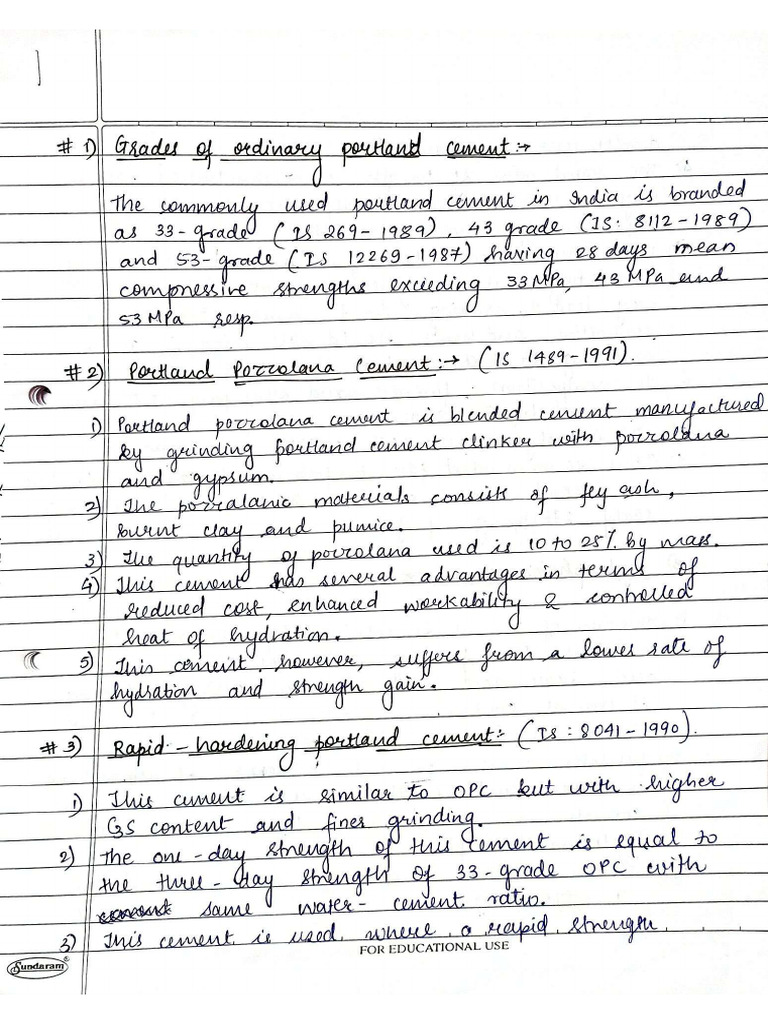 1
# 1) Grades of ordinary portland cement :→
The commonly used portland cement in India is branded
as 33-grade (IS 269-1989), 43 grade (IS: 8112-1989)
and 53-grade (IS 12269-1987) having 28 days mean
compressive strengths exceeding 33MPa, 43 MPa and
53 MPa resp.
# 2) Portland Pozzolana Cement :→ (IS 1489-1991).
1) Portland pozzolana cement is blended cement manufactured
by grinding portland cement clinker with pozzolana
and gypsum.
2) The pozzalanic materials consists of fly ash,
burnt clay and pumice.
3) The quantity of pozzolana used is 10 to 25% by mass.
4) This cement has several advantages in terms of
reduced cost, enhanced workability & controlled
heat of hydration.
5) This cement, however, suffers from a lower rate of
hydration and strength gain.
# 3) Rapid-hardening portland cement :- (IS : 8041-1990).
1) This cement is similar to OPC but with higher
C3S content and finer grinding.
2) The one-day strength of this cement is equal to
the three-day strength of 33-grade OPC with
same water-cement ratio.
3) This cement is used where a rapid strength
FOR EDUCATIONAL USE
Sundaram®